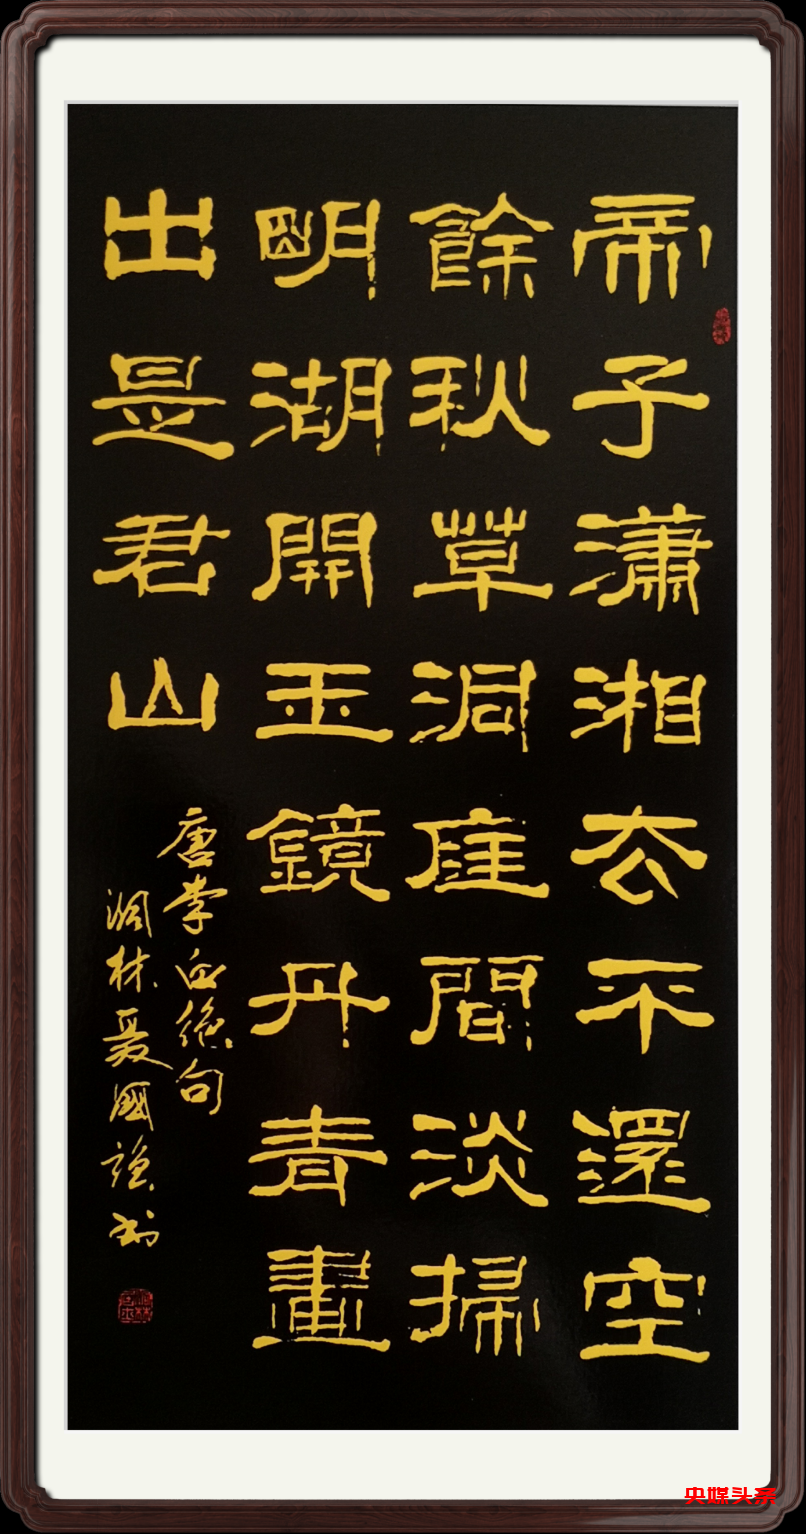 帝子瀟湘去不還空
餘秋草洞庭間淡掃
明湖開玉鏡丹青畫
出是君山
唐李白絕句
林聂國书
央媒头条